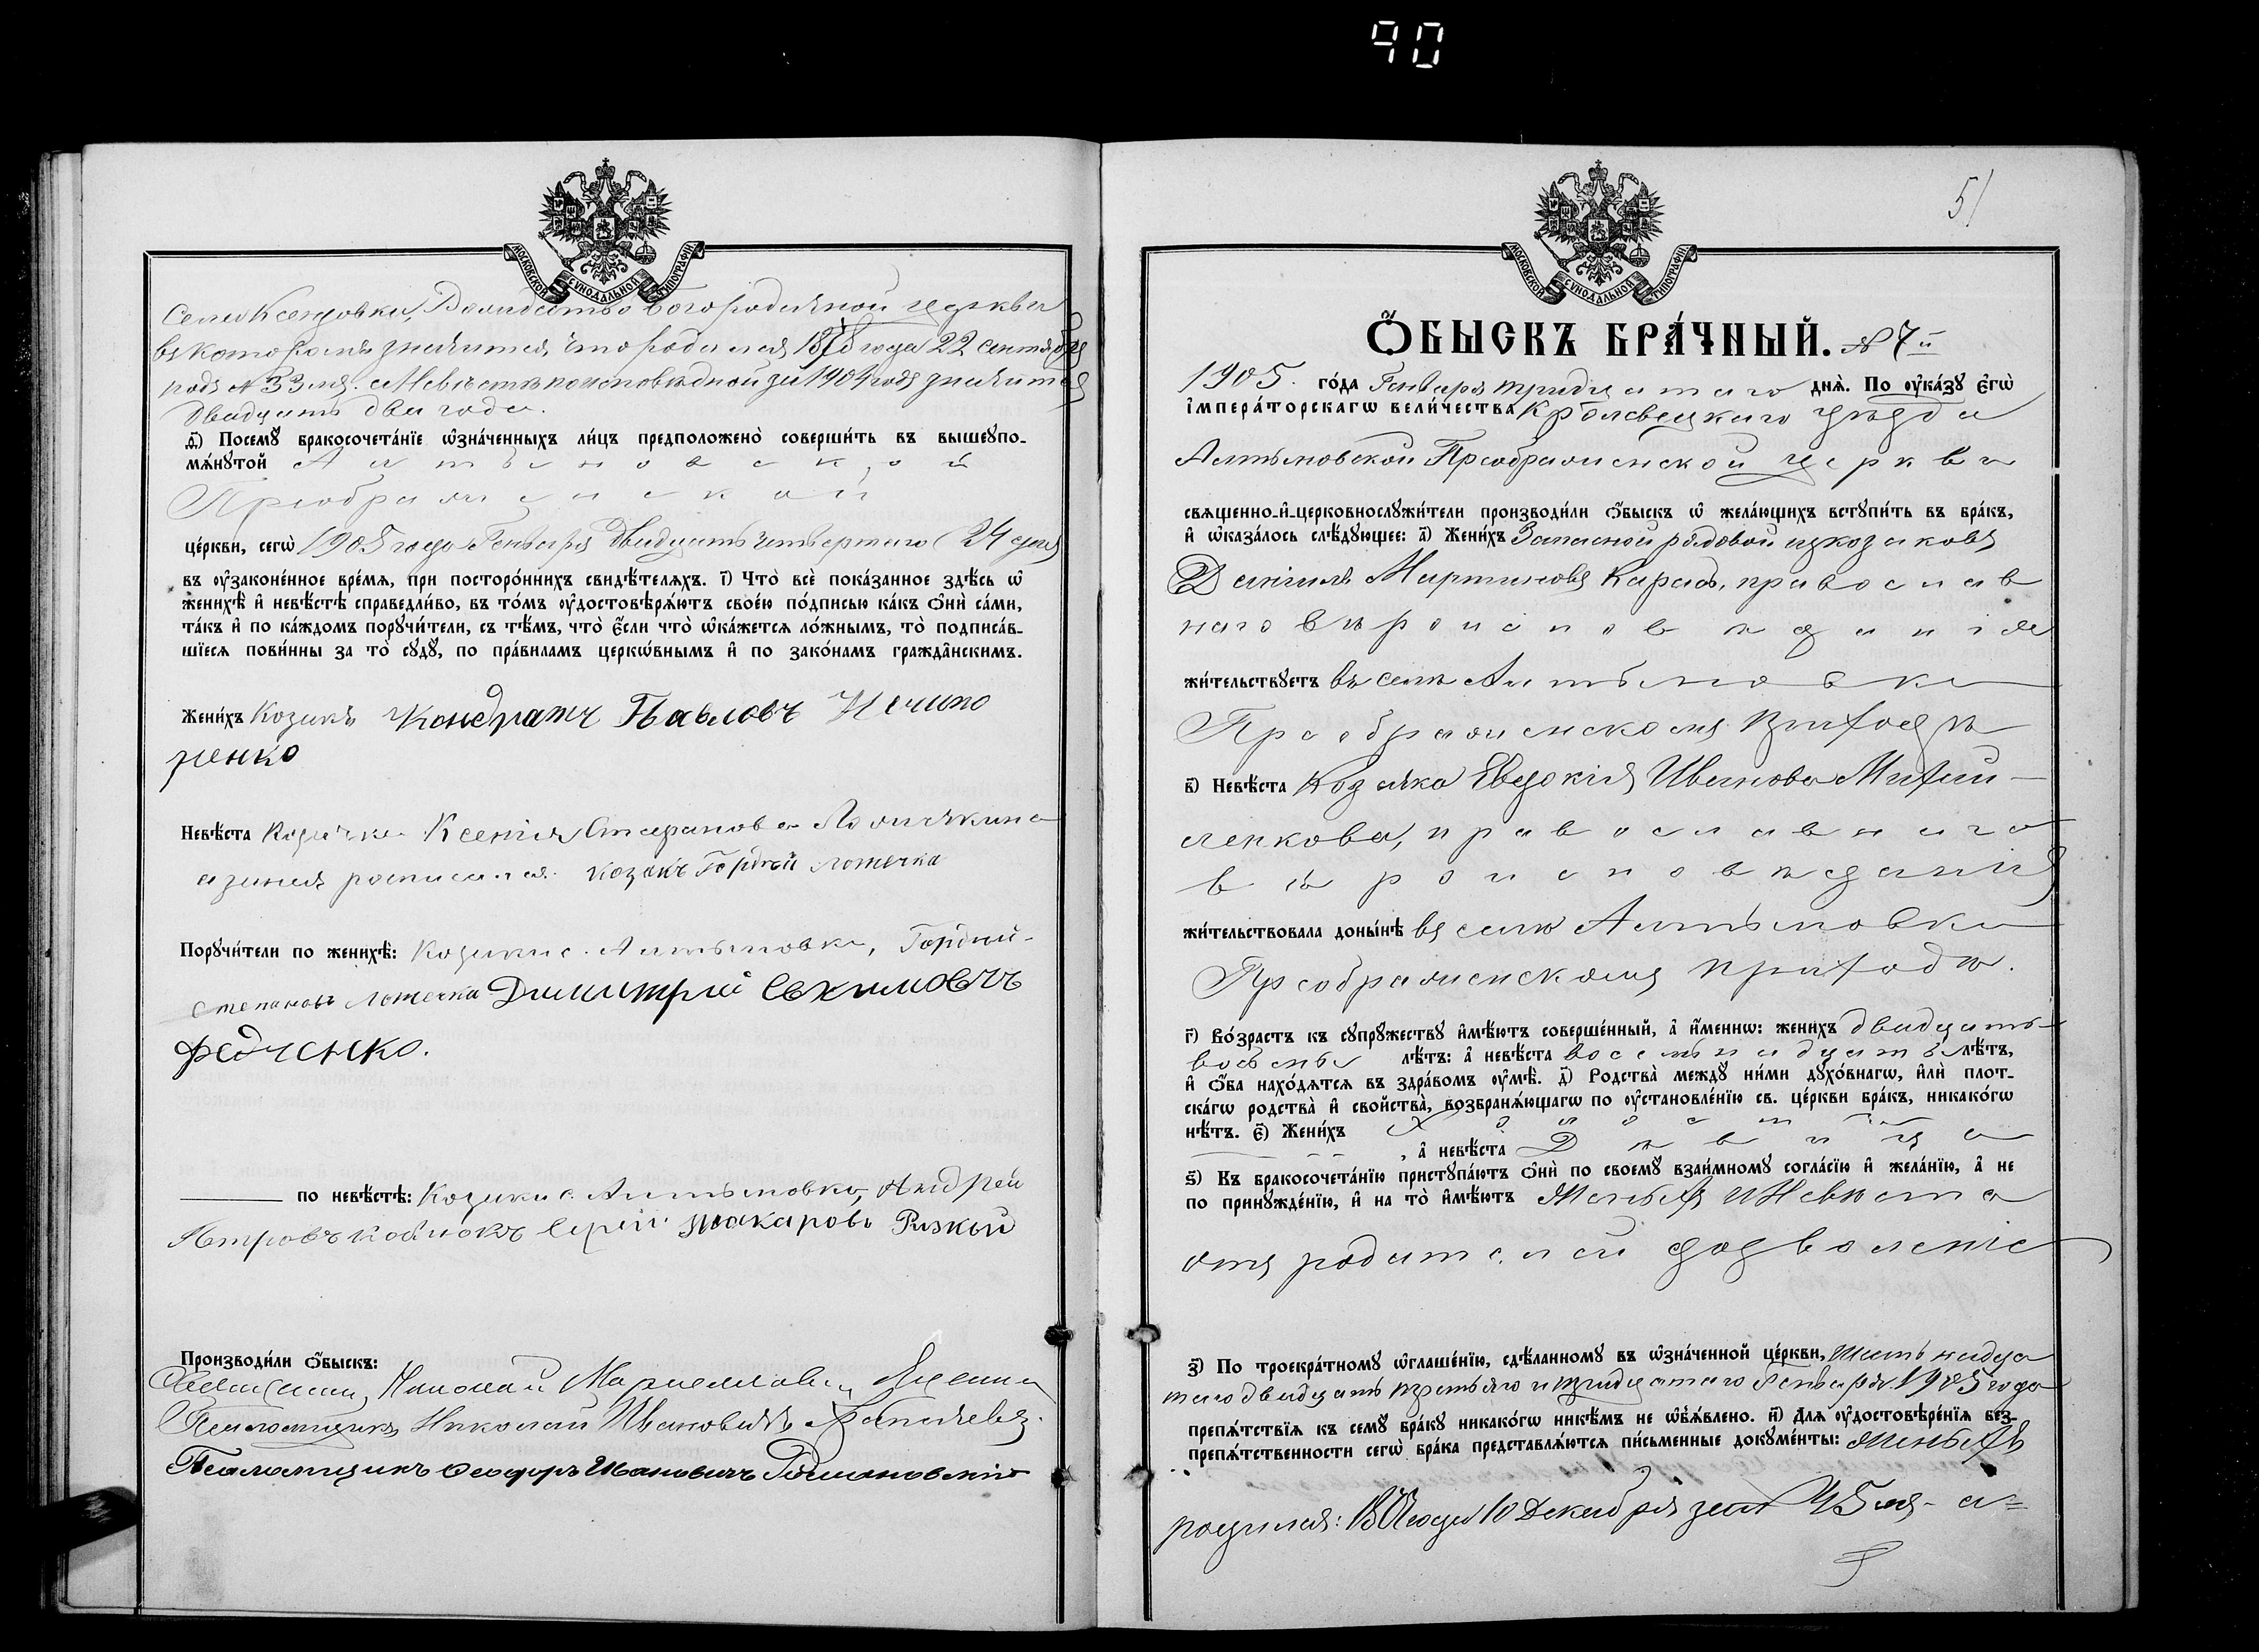 90
МОСКОВСКОЙ СУНОДАЛЬНОЙ ТИПОГРАФІИ
Рождество Богородичной церкви
въ которомъ значится, что родился 1878 года 22 Сентября
подъ № 33мъ. а Невѣста по исповѣдной за 1904 годъ значится
двадцать два года.
д҃і) Посемꙋ̀ бракосочета́нїе ѡ҆зна́ченныхъ ли́цъ предположено̀ соверши́ть въ вышеꙋпо-
мѧ́нꙋтой Алтыновской
Преображенской
це́ркви, сегѡ̀ 1905 года Генваря двадцать четвертаго (24 дня)
въ ᲂу҆законе́нное вре́мѧ, при посторо́ннихъ свидѣ́телѧхъ. і҃) Что̀ всѐ пока́занное здѣ́сь ѡ҆
женихѣ̀ и҆ невѣ́стѣ справедли́во, въ то́мъ ᲂу҆достовѣрѧ́ютъ свое́ю по́дписью ка́къ ѻ҆нѝ са́ми,
та́къ и҆ по ка́ждомъ порꙋчи́тели, съ тѣ́мъ, что̀ є҆́сли что̀ ѡ҆ка́жется ло́жнымъ, то̀ подписа́в-
шїеся пови́нны за то̀ сꙋдꙋ̀, по пра́виламъ церкѡ́внымъ и҆ по зако́намъ гражда̑нскимъ.
Жени́хъ Козакъ Кондратъ Павловъ Нечипо
ренко
Невѣ́ста Козачка Ксенія Стефанова
козакъ Гордѣй Лотечка
Порꙋчи́тели по женихѣ̀: Козаки с. Алтыновки, Гордий
Степановъ Лотечка Димитрій Евхимовъ
Федченко.
по невѣ́стѣ: Козаки с. Алтыновки, Андрей
Петровъ Сергій Макаровъ Ризкый
Производи́ли ѻ҆́быскъ:
Священникъ Николай
Псаломщикъ Николай Ивановичъ
Псаломщикъ Феодоръ Ивановичъ Романовскій
51
МОСКОВСКОЙ СУНОДАЛЬНОЙ ТИПОГРАФІИ
Ѻ҆́БЫСКЪ БРА́ЧНЫЙ. № 7й
1905. го́да Генваря тридцатаго днѧ̀. По ᲂу҆ка́зꙋ Є҆гѡ̀
І҆мпера́торскагѡ вели́чества Кролевецкаго уѣзда
Алтыновской Преображенской церкви
свѧще́нно-и҆-церковнослꙋжи́тели производи́ли ѻ҆́быскъ ѡ҆ жела́ющихъ встꙋпи́ть въ бра́къ,
и҆ ѡ҆каза́лось слѣ́дꙋющее: а҃) Жени́хъ Запасной рядовой изъ козаковъ
Даніилъ Мартиновъ православ
наго вѣроисповѣданія
жи́тельствꙋетъ въ селѣ Алтыновки
Преображенскомъ приходѣ
в҃) Невѣ́ста Козачка Евдокія Иванова Михай-
ленкова, православнаго
вѣроисповѣданія
жи́тельствовала доны́нѣ въ селѣ Алтыновки
Преображенскомъ приходѣ.
г҃) Во́зрастъ къ сꙋпрꙋ́жествꙋ и҆мѣ́ютъ соверше́нный, а҆ и҆́менни: жени́хъ двадцать
восемь лѣ́тъ: а҆ невѣ́ста восемнадцать лѣ́тъ,
и҆ ѻ҆́ба нахо́дѧтсѧ въ здра́вомъ ᲂу҆мѣ̀. д҃) Родства̀ междꙋ̀ ни́ми дꙋхо́внагѡ, и҆лѝ плот-
ска́гѡ родства̀ и҆ свойства̀, возбранѧ́ющагѡ по ᲂу҆становле́нїю св. це́ркви бра́къ, никако́гѡ
нѣ́тъ. є҃) Жени́хъ Холостъ
, а҆ невѣ́ста Дѣвица
ѕ҃) Къ бракосочета́нїю пристꙋпа́ютъ ѻ҆нѝ по своемꙋ̀ взаи́мномꙋ согла́сїю и҆ жела́нїю, а҆ не
по принꙋжде́нїю, и҆ на то̀ и҆мѣ́ютъ Женихъ и Невѣста
отъ родителей дозволеніе
з҃) По троекра́тномꙋ ѡ҆глаше́нїю, сдѣ́ланномꙋ въ ѡ҆зна́ченной це́ркви, шестнадца
таго двадцать третьяго и тридцатаго Генваря 1905 года
препѧ́тствїѧ къ семꙋ̀ бра́кꙋ никако́гѡ никѣ́мъ не ѡ҆б̾ѧ́влено. и҃) Длѧ ᲂу҆достовѣре́нїѧ без-
препѧ́тственности сегѡ̀ бра́ка представлѧ́ютсѧ пи́сьменные докꙋме́нты: Женихъ
родился: года 10 Декабря 45 мъ- а=